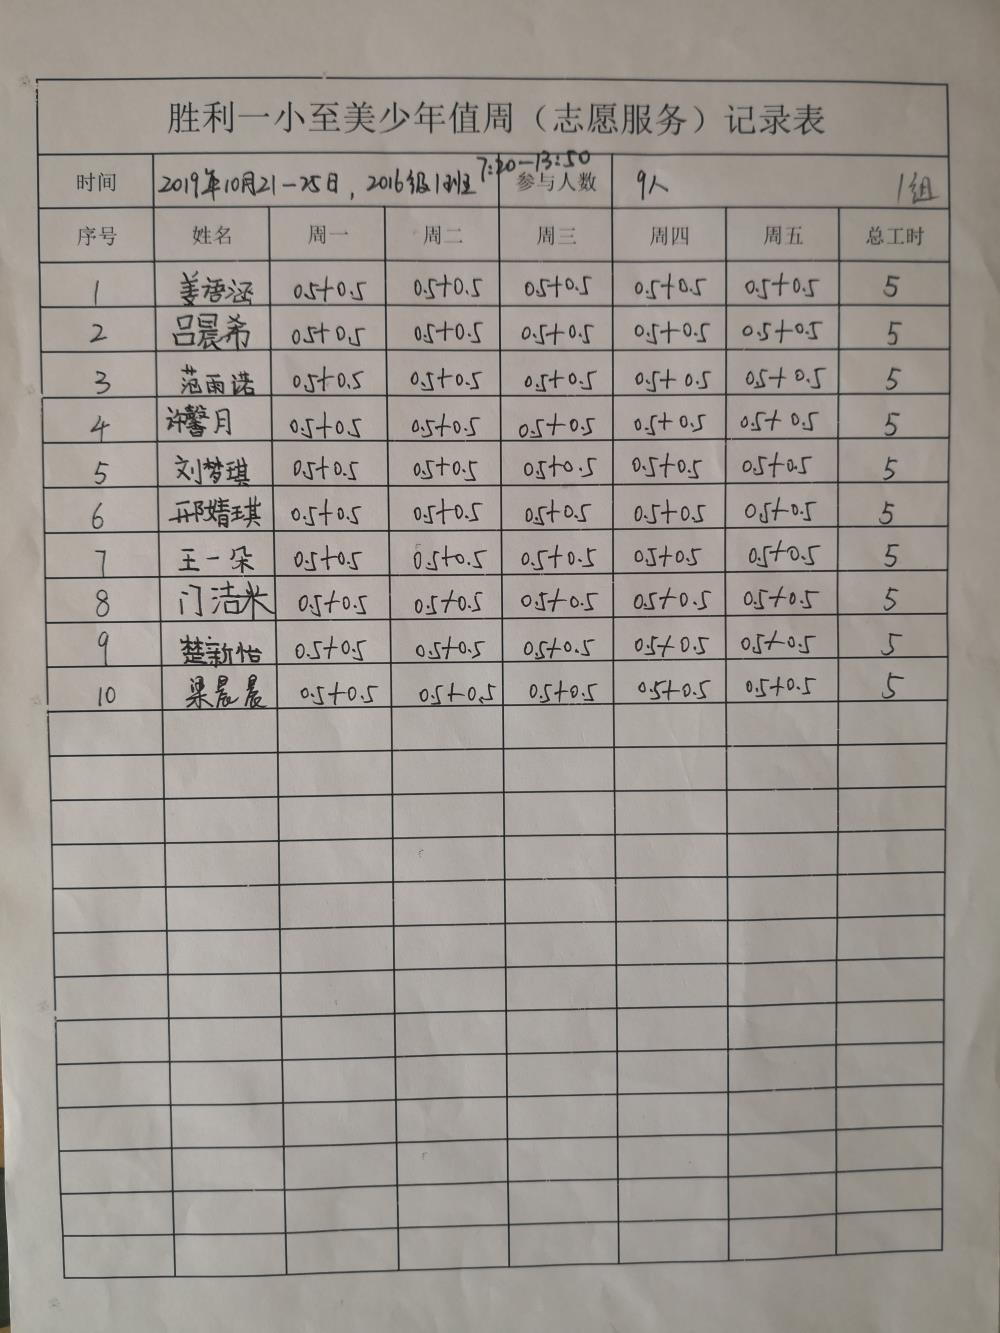 胜利一小至美少年值周（志愿服务）记录表
7:20-13:50
时间 2019年10月21-25日，2016级1班 参与人数 9人 1组
序号 姓名 周一 周二 周三 周四 周五 总工时
1 姜语涵 0.5+0.5 0.5+0.5 0.5+0.5 0.5+0.5 0.5+0.5 5
2 吕晨希 0.5+0.5 0.5+0.5 0.5+0.5 0.5+0.5 0.5+0.5 5
3 范雨诺 0.5+0.5 0.5+0.5 0.5+0.5 0.5+0.5 0.5+0.5 5
4 许馨月 0.5+0.5 0.5+0.5 0.5+0.5 0.5+0.5 0.5+0.5 5
5 刘梦琪 0.5+0.5 0.5+0.5 0.5+0.5 0.5+0.5 0.5+0.5 5
6 邢婧琪 0.5+0.5 0.5+0.5 0.5+0.5 0.5+0.5 0.5+0.5 5
7 王一朵 0.5+0.5 0.5+0.5 0.5+0.5 0.5+0.5 0.5+0.5 5
8 门洁米 0.5+0.5 0.5+0.5 0.5+0.5 0.5+0.5 0.5+0.5 5
9 楚新怡 0.5+0.5 0.5+0.5 0.5+0.5 0.5+0.5 0.5+0.5 5
10 梁晨晨 0.5+0.5 0.5+0.5 0.5+0.5 0.5+0.5 0.5+0.5 5